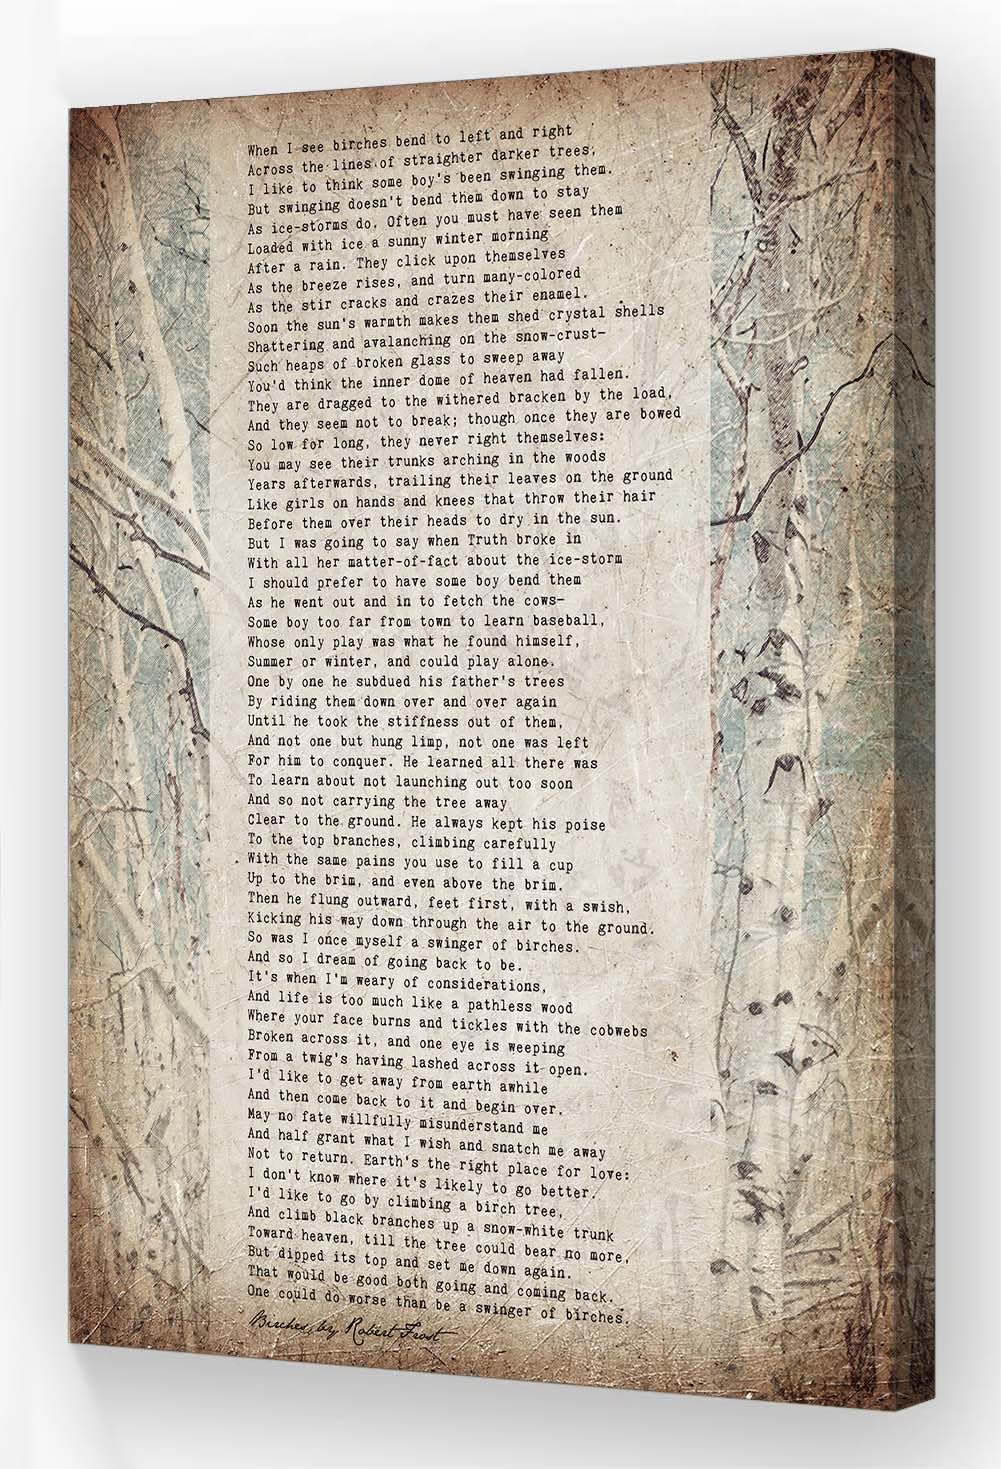 When I see birches bend to left and right
Across the lines of straighter darker trees,
I like to think some boy's been swinging them.
But swinging doesn't bend them down to stay
As ice-storms do. Often you must have seen them
Loaded with ice a sunny winter morning
After a rain. They click upon themselves
As the breeze rises, and turn many-colored
As the stir cracks and crazes their enamel.
Soon the sun's warmth makes them shed crystal shells
Shattering and avalanching on the snow-crust—
Such heaps of broken glass to sweep away
You'd think the inner dome of heaven had fallen.
They are dragged to the withered bracken by the load,
And they seem not to break; though once they are bowed
So low for long, they never right themselves:
You may see their trunks arching in the woods
Years afterwards, trailing their leaves on the ground
Like girls on hands and knees that throw their hair
Before them over their heads to dry in the sun.
But I was going to say when Truth broke in
With all her matter-of-fact about the ice-storm
I should prefer to have some boy bend them
As he went out and in to fetch the cows—
Some boy too far from town to learn baseball,
Whose only play was what he found himself,
Summer or winter, and could play alone.
One by one he subdued his father's trees
By riding them down over and over again
Until he took the stiffness out of them,
And not one but hung limp, not one was left
For him to conquer. He learned all there was
To learn about not launching out too soon
And so not carrying the tree away
Clear to the ground. He always kept his poise
To the top branches, climbing carefully
With the same pains you use to fill a cup
Up to the brim, and even above the brim.
Then he flung outward, feet first, with a swish,
Kicking his way down through the air to the ground.
So was I once myself a swinger of birches.
And so I dream of going back to be.
It's when I'm weary of considerations,
And life is too much like a pathless wood
Where your face burns and tickles with the cobwebs
Broken across it, and one eye is weeping
From a twig's having lashed across it open.
I'd like to get away from earth awhile
And then come back to it and begin over.
May no fate willfully misunderstand me
And half grant what I wish and snatch me away
Not to return. Earth's the right place for love:
I don't know where it's likely to go better.
I'd like to go by climbing a birch tree,
And climb black branches up a snow-white trunk
Toward heaven, till the tree could bear no more,
But dipped its top and set me down again.
That would be good both going and coming back.
One could do worse than be a swinger of birches.
Birches, by Robert Frost